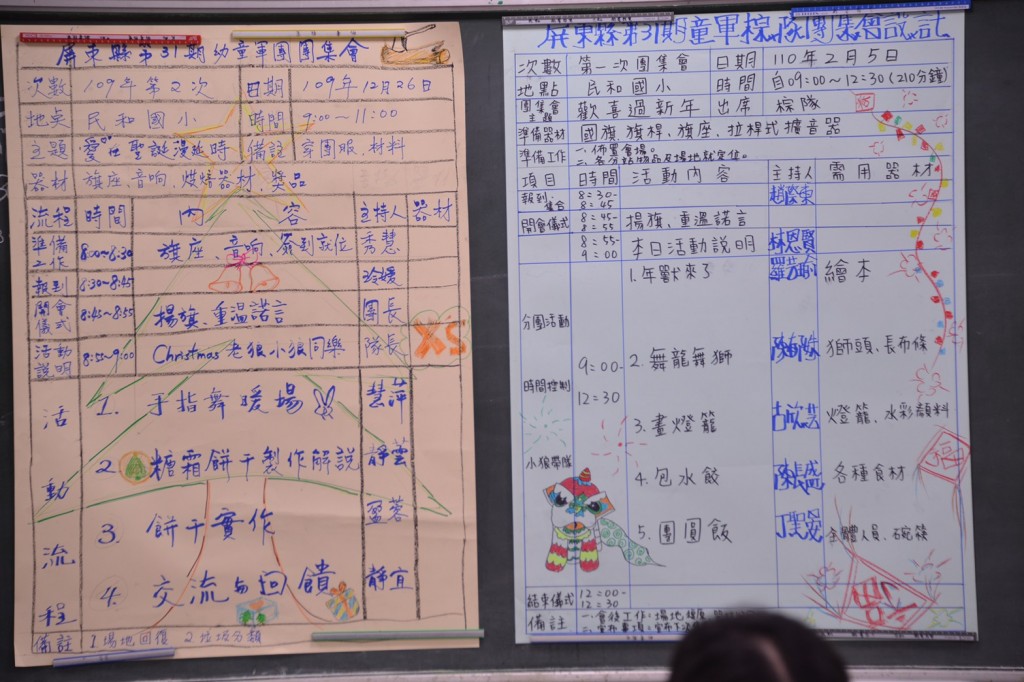 屏東縣第31期幼童軍團團集會
次數 109年第2次 日期 109年12月26日
地點 民和國小 時間 9:00~11:00
主題 愛在聖誕漫延時 備註 穿團服、材料
器材 旗座、音响、烘焙器材、獎品
流程 時間 內容 主持人 器材
準備工作 8:00~8:30 旗座、音响、簽到就位 秀慧
報到 8:30~8:45 玲媛
開會儀式 8:45~8:55 揚旗、重溫諾言 團長
活動說明 8:55~9:00 Christmas 老狼小狼同樂 隊長
活動流程
1. 手指舞暖場 慧萍
2 糖霜餅干製作解說 靜雲
3. 餅干實作 盈蓉
4. 交流與回饋 靜宜
備註 1.場地回復 2垃圾分類
屏東縣第31期童軍棕隊團集會設計
次數 第一次團集會 日期 110年2月5日
地點 民和國小 時間 自09:00~12:30(210分鐘)
團集會主題 歡喜過新年 出席 棕隊
準備器材 國旗、旗桿、旗座、拉桿式擴音器
準備工作 一.佈置會場。
二.各分站物品及場地就定位。
項目 時間 活動內容 主持人 需用器材
報到、集合 8:30-8:45
開會儀式 8:45-8:55 揚旗、重溫諾言
8:55-9:00 本日活動說明 林恩賢
分團活動 時間控制 小狼帶隊
9:00-12:30
1.年獸來了 繪本
2.舞龍舞獅 獅頭、長布條
3.畫燈籠 燈籠、水彩顏料
4.包水餃 陳長盛 各種食材
5.團圓飯 全體人員、碗筷
福
結束儀式 12:00-12:30
備註 一.會後工作:場地復原